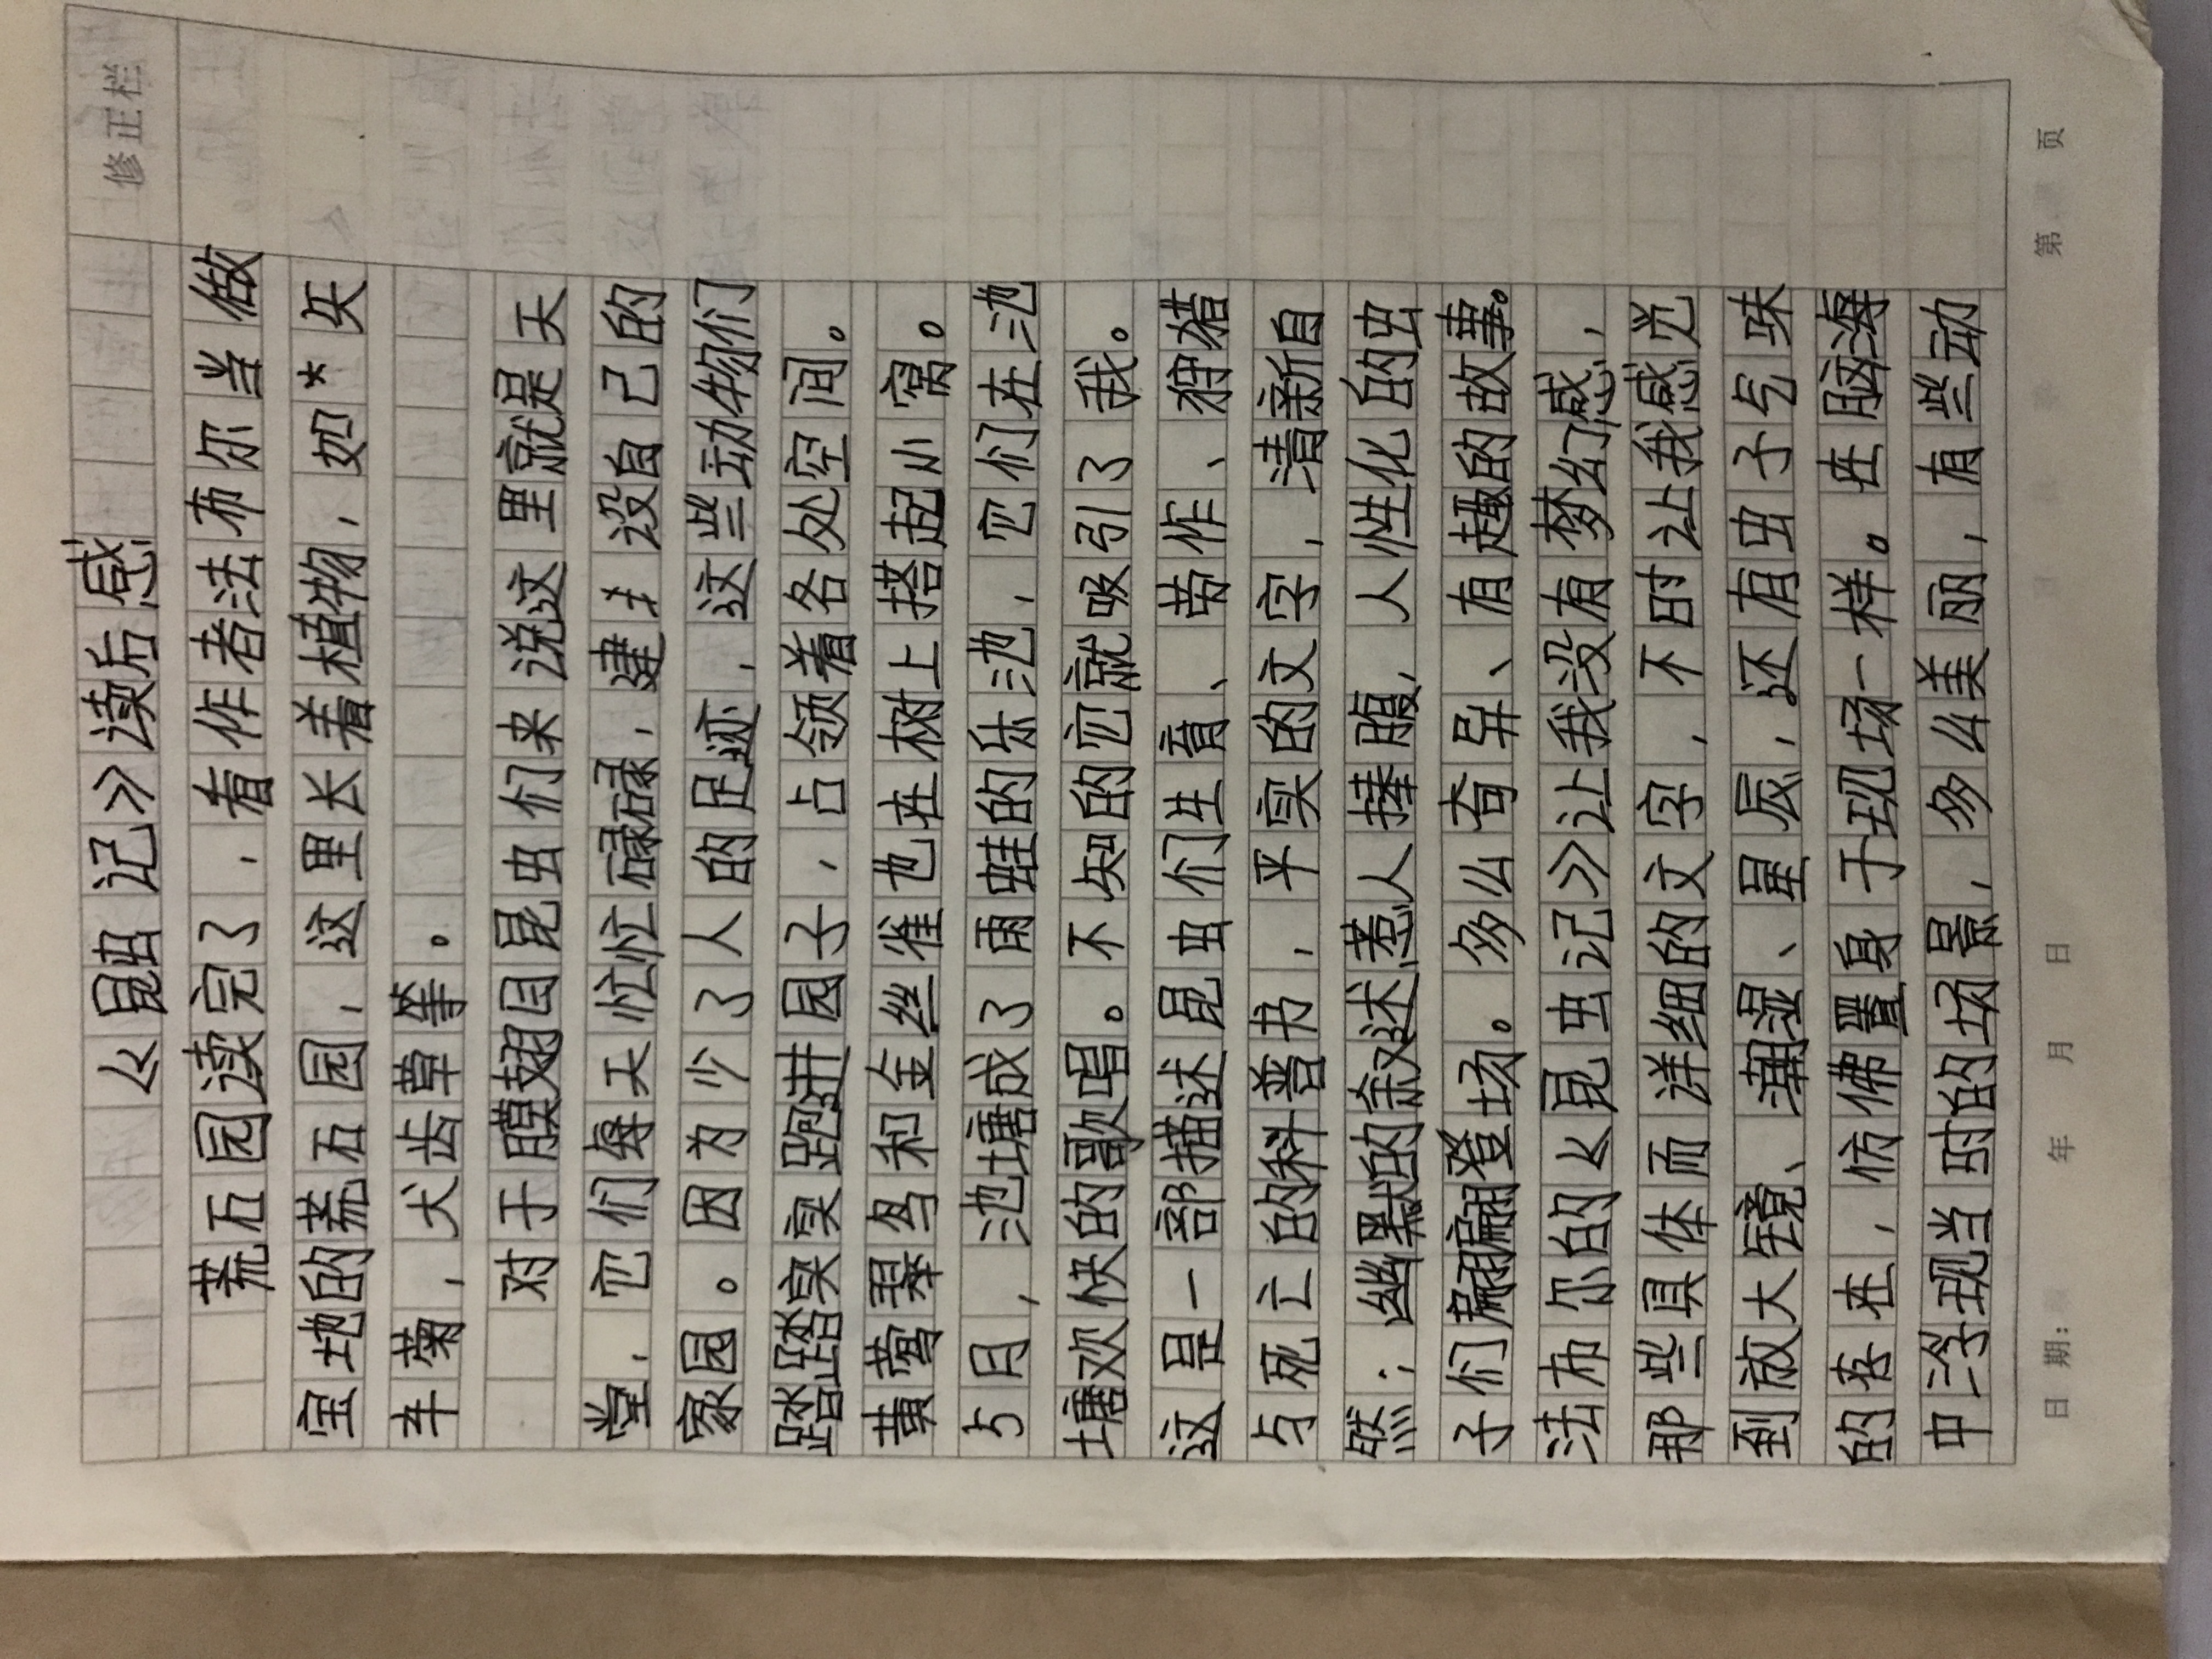 修正栏
《昆虫记》读后感
荒石园读完了，看作者法布尔当做
宝地的荒石园，这里长着植物，如*矢
车菊，犬齿草等。
对于膜翅目昆虫们来说这里就是天
堂，它们每天忙忙碌碌，建 设自己的
家园。因为少了人的足迹，这些动物们
踏踏实实跑进园子，占领着各处空间。
黄莺翠鸟和金丝雀也在树上搭起小窝。
5月，池塘成了雨蛙的乐池，它们在池
塘欢快的歌唱。不知的它就吸引了我。
这是一部描述昆虫们生育、劳作、狩猎
与死亡的科普书，平实的文字，清新自
然；幽默的叙述惹人捧腹，人性化的虫
子们翩翩登场。多么奇异、有趣的故事。
法布尔的《昆虫记》让我没有梦幻感，
那些具体而详细的文字，不时让我感觉
到放大镜、潮湿、星辰，还有虫子气味
的存在，仿佛置身于现场一样。在脑海
中浮现当时的场景，多么美丽，有些动
日期： 年 月 日 第 页